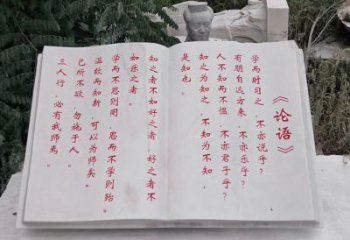 《论语》
学而时习之，不亦说乎？
有朋自远方来，不亦乐乎？
人不知而不愠，不亦君子乎？
知之为知之，不知为不知，
是知也。
知之者不如好之者，好之者不
如乐之者。
学而不思则罔，思而不学则殆。
温故而知新，可以为师矣。
己所不欲，勿施于人。
三人行，必有我师焉。